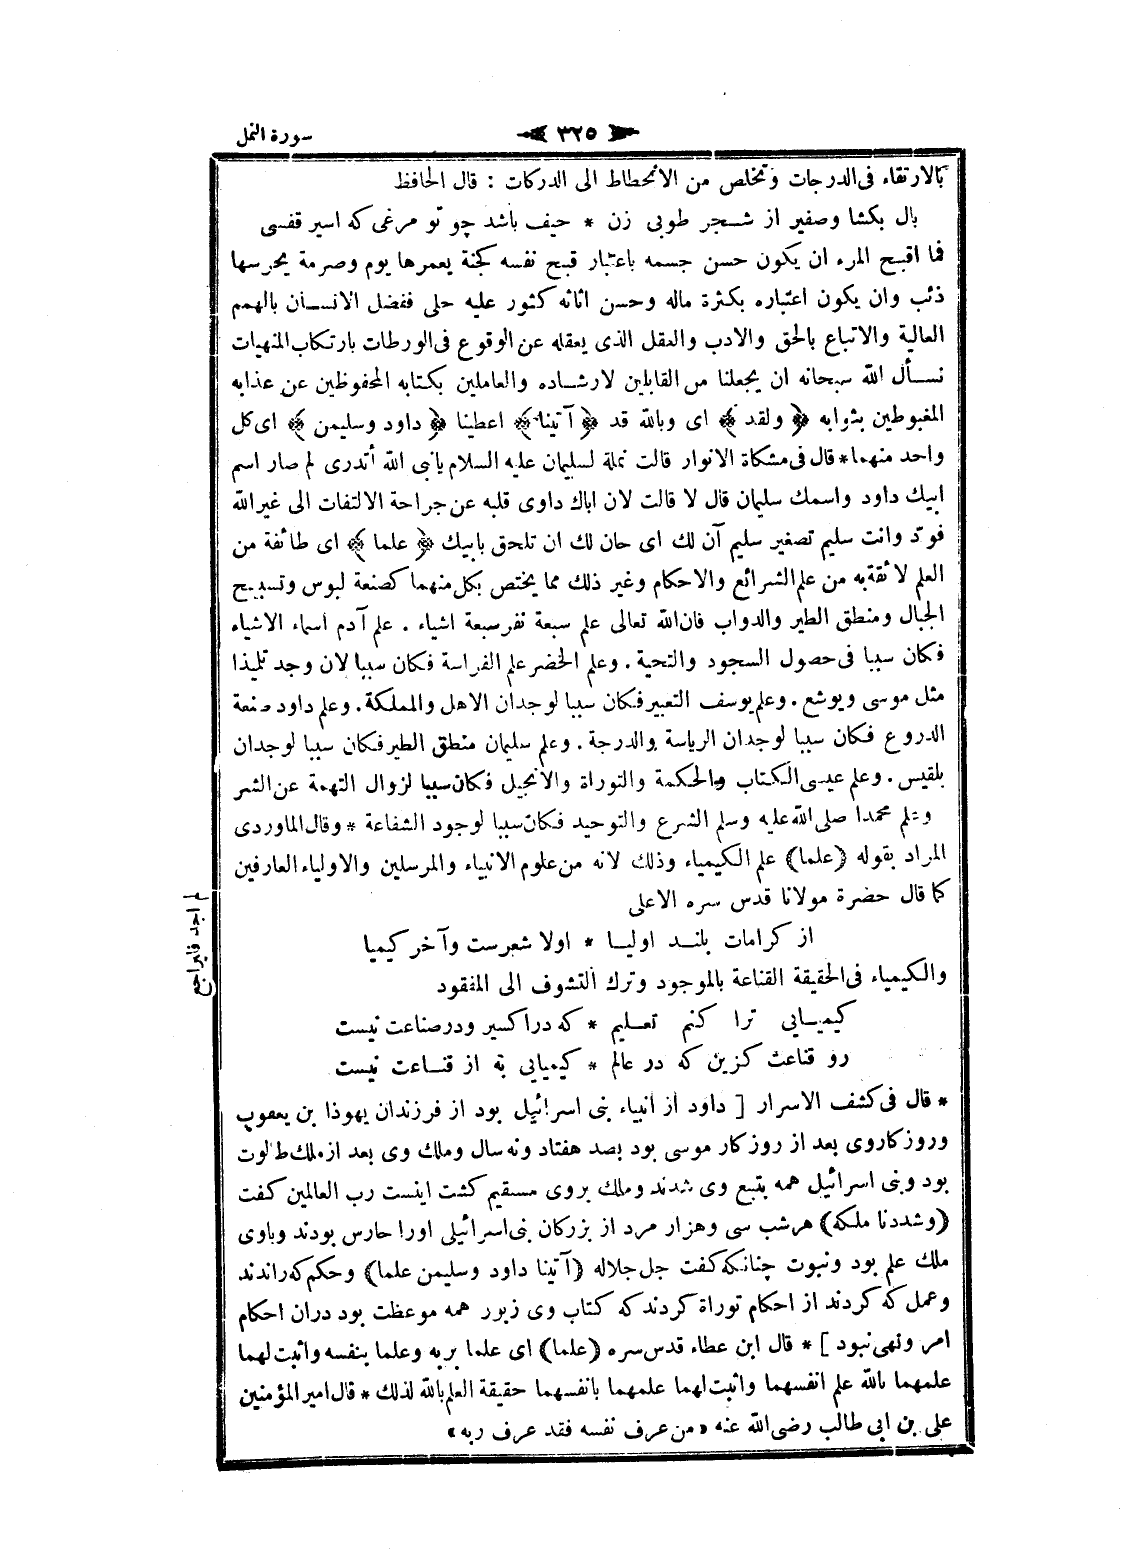 سورة النمل
٣٢٥
بالارتقاء فى الدرجات وتخلص من الانحطاط الى الدركات : قال الحافظ
بال بكشا وصفير از شجر طوبى زن * حيف باشد چو تو مرغى كه اسير قفسى
فما اقبح المرء ان يكون حسن جسمه باعتبار قبح نفسه كجنة يعمرها يوم وصرمة يحرسها
ذئب وان يكون اعتباره بكثرة ماله وحسن اثاثه كثور عليه حلى ففضل الانسان بالهمم
العالية والاتباع بالحق والادب والعقل الذى يعقله عن الوقوع فى الورطات بارتكاب المنهيات
نسأل الله سبحانه ان يجعلنا من القابلين لارشاده والعاملين بكتابه المحفوظين عن عذابه
المغبوطين بثوابه ﴿ ولقد ﴾ اى وبالله قد ﴿ آتينا ﴾ اعطينا ﴿ داود وسليمن ﴾ اى كل
واحد منهما * قال فى مشكاة الانوار قالت نملة لسليمان عليه السلام يا نبى الله أتدرى لم صار اسم
ابيك داود واسمك سليمان قال لا قالت لان اباك داوى قلبه عن جراحة الالتفات الى غير الله
فودّ وانت سليم تصغير سليم آن لك اى حان لك ان تلحق بابيك ﴿ علما ﴾ اى طائفة من
العلم لائقة به من علم الشرائع والاحكام وغير ذلك مما يختص بكل منهما كصنعة لبوس وتسبيح
الجبال ومنطق الطير والدواب فان الله تعالى علم سبعة نفر سبعة اشياء . علم آدم اسماء الاشياء
فكان سببا فى حصول السجود والتحية . وعلم الخضر علم الفراسة فكان سببا لان وجد تلميذا
مثل موسى ويوشع . وعلم يوسف التعبير فكان سببا لوجدان الاهل والمملكة . وعلم داود صنعة
الدروع فكان سببا لوجدان الرياسة والدرجة . وعلم سليمان منطق الطير فكان سببا لوجدان
بلقيس . وعلم عيسى الكتاب والحكمة والتوراة والانجيل فكان سببا لزوال التهمة عن الشر
وعلم محمدا صلى الله عليه وسلم الشرع والتوحيد فكان سببا لوجود الشفاعة * وقال الماوردى
المراد بقوله (علما) علم الكيمياء وذلك لانه من علوم الانبياء والمرسلين والاولياء العارفين
كما قال حضرة مولانا قدس سره الاعلى
از كرامات بلند اوليا * اولا شعرست وآخر كيميا
والكيمياء فى الحقيقة القناعة بالموجود وترك التشوف الى المفقود
كيميايى ترا كنم تعليم * كه در اكسير ودر صناعت نيست
رو قناعت كزين كه در عالم * كيميايى به از قناعت نيست
* قال فى كشف الاسرار [ داود از انبياء بنى اسرائيل بود از فرزندان يهوذا بن يعقوب
وروزكار وى بعد از روزكار موسى بود بصد هفتاد ونه سال وملك وى بعد از ملك طالوت
بود وبنى اسرائيل همه بتبع وى شدند وملك بروى مستقيم كشت اينست رب العالمين كفت
(وشددنا ملكه) هر شب سى وهزار مرد از بزركان بنى اسرائيلى اورا حارس بودند وباوى
ملك علم بود ونبوت چنانكه كفت جل جلاله (آتينا داود وسليمن علما) وحكم كه راندند
وعمل كه كردند از احكام توراة كردند كه كتاب وى زبور همه موعظت بود دران احكام
امر ونهى نبود ] * قال ابن عطاء قدس سره (علما) اى علما بربه وعلما بنفسه واثبت لهما
علمهما بالله علم انفسهما واثبت لهما علمهما بانفسهما حقيقة العلم بالله لذلك * قال امير المؤمنين
على بن ابى طالب رضى الله عنه «من عرف نفسه فقد عرف ربه»
لم اجد فليراجع